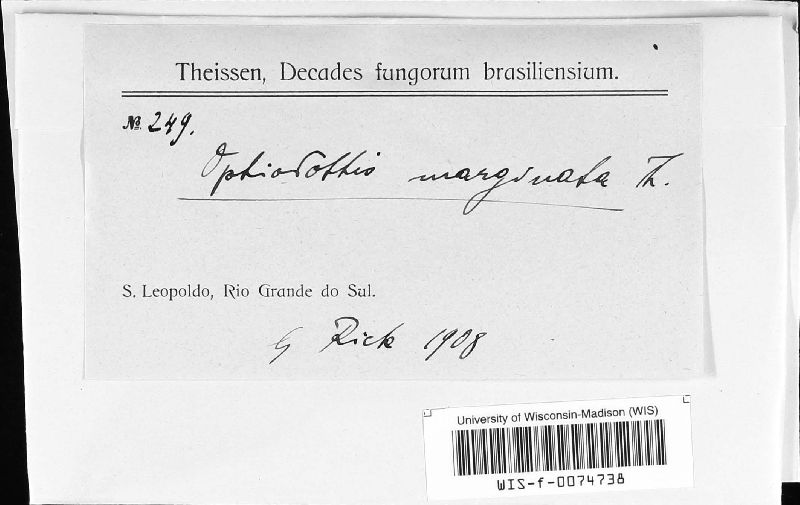 Theissen, Decades fungorum brasiliensium.
№ 249.
Ophiodothis marginata Th.
S. Leopoldo, Rio Grande do Sul.
Rick 1908
University of Wisconsin-Madison (WIS)
WIS-f-0074738